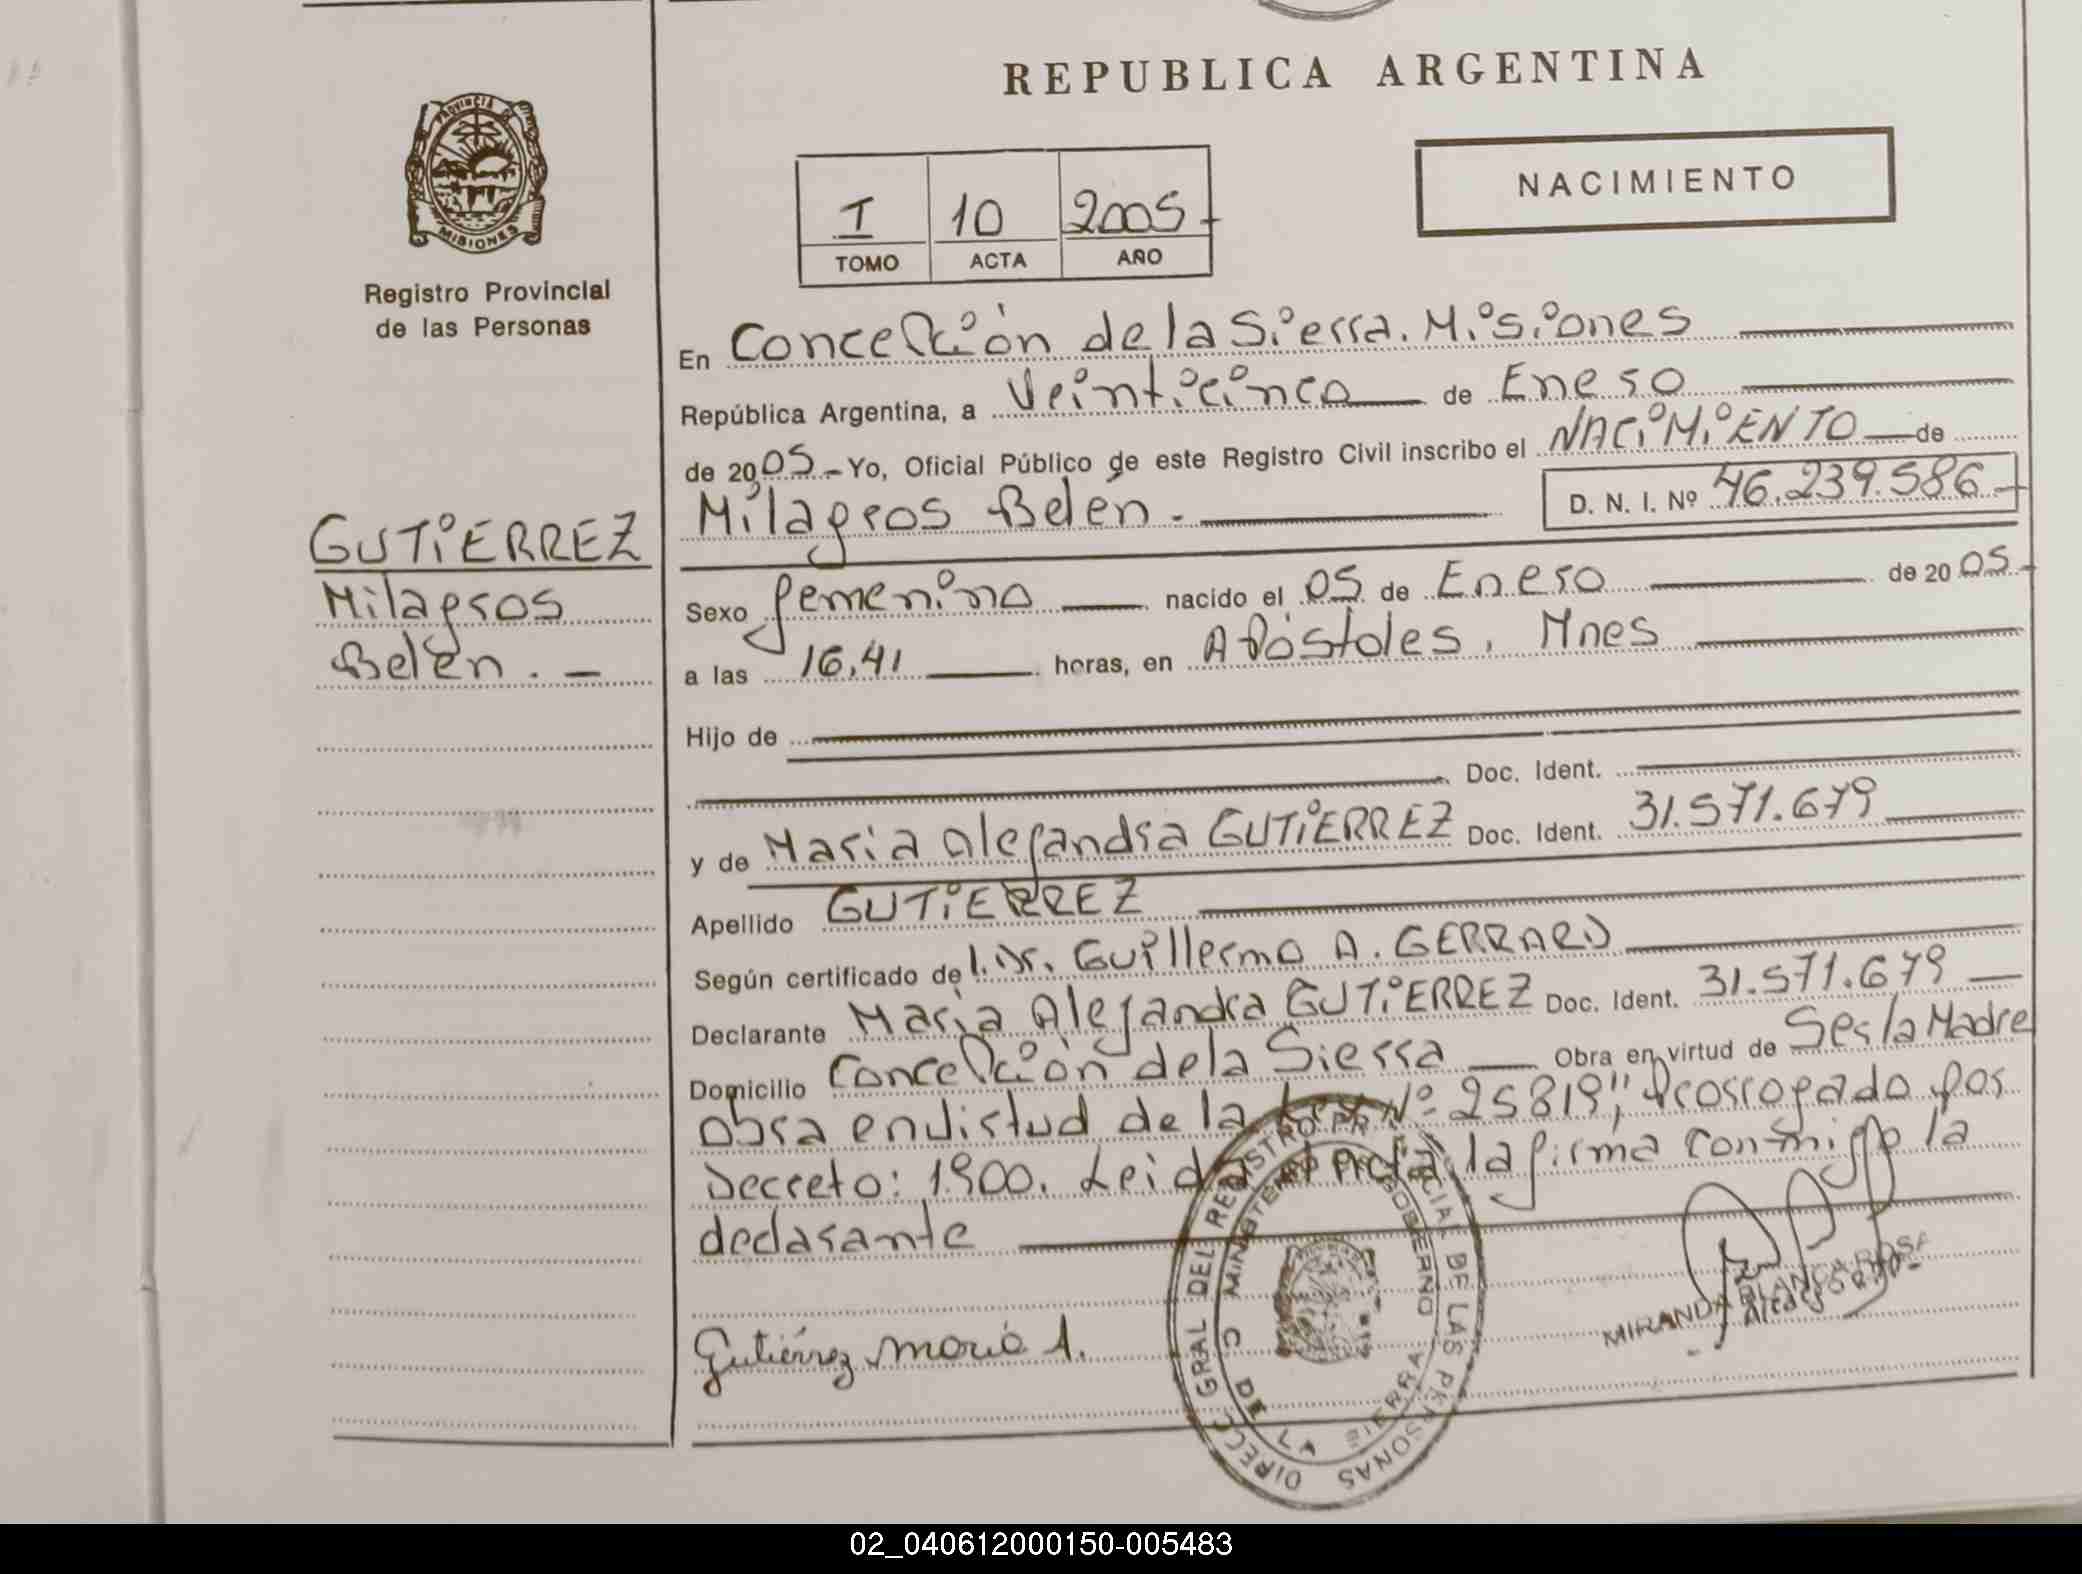 REPUBLICA ARGENTINA
PROVINCIA DE
MISIONES
Registro Provincial
de las Personas
NACIMIENTO
I 10 2005
TOMO ACTA AÑO
En Concepción de la Sierra. Misiones
República Argentina, a Veinticinco de Enero
de 2005 Yo, Oficial Público de este Registro Civil inscribo el NACIMIENTO de
Milagros Belén. D. N. I. Nº 46.239.586
GUTIERREZ
Milagros
Belén.
Sexo femenino nacido el 05 de Enero de 2005
a las 16,41 horas, en Apóstoles, Mnes
Hijo de
Doc. Ident.
y de Maria Alejandra GUTIERREZ Doc. Ident. 31.571.679
Apellido GUTIERREZ
Según certificado de l. Dr. Guillermo A. GERRARD
Declarante Maria Alejandra GUTIERREZ Doc. Ident. 31.571.679
Domicilio Concepción de la Sierra Obra en virtud de Ser la Madre
obra en virtud de la Ley Nº 25819," Prorrogado por
Decreto: 1900. Leida el acta, la firma conmigo la
declarante
Gutiérrez María A.
MIRANDA BLANCA ROSA
DIREC. GRAL DEL REGISTRO PROVINCIAL DE LAS PERSONAS
MINISTERIO DE GOBIERNO
C. DE LA SIERRA
02_040612000150-005483